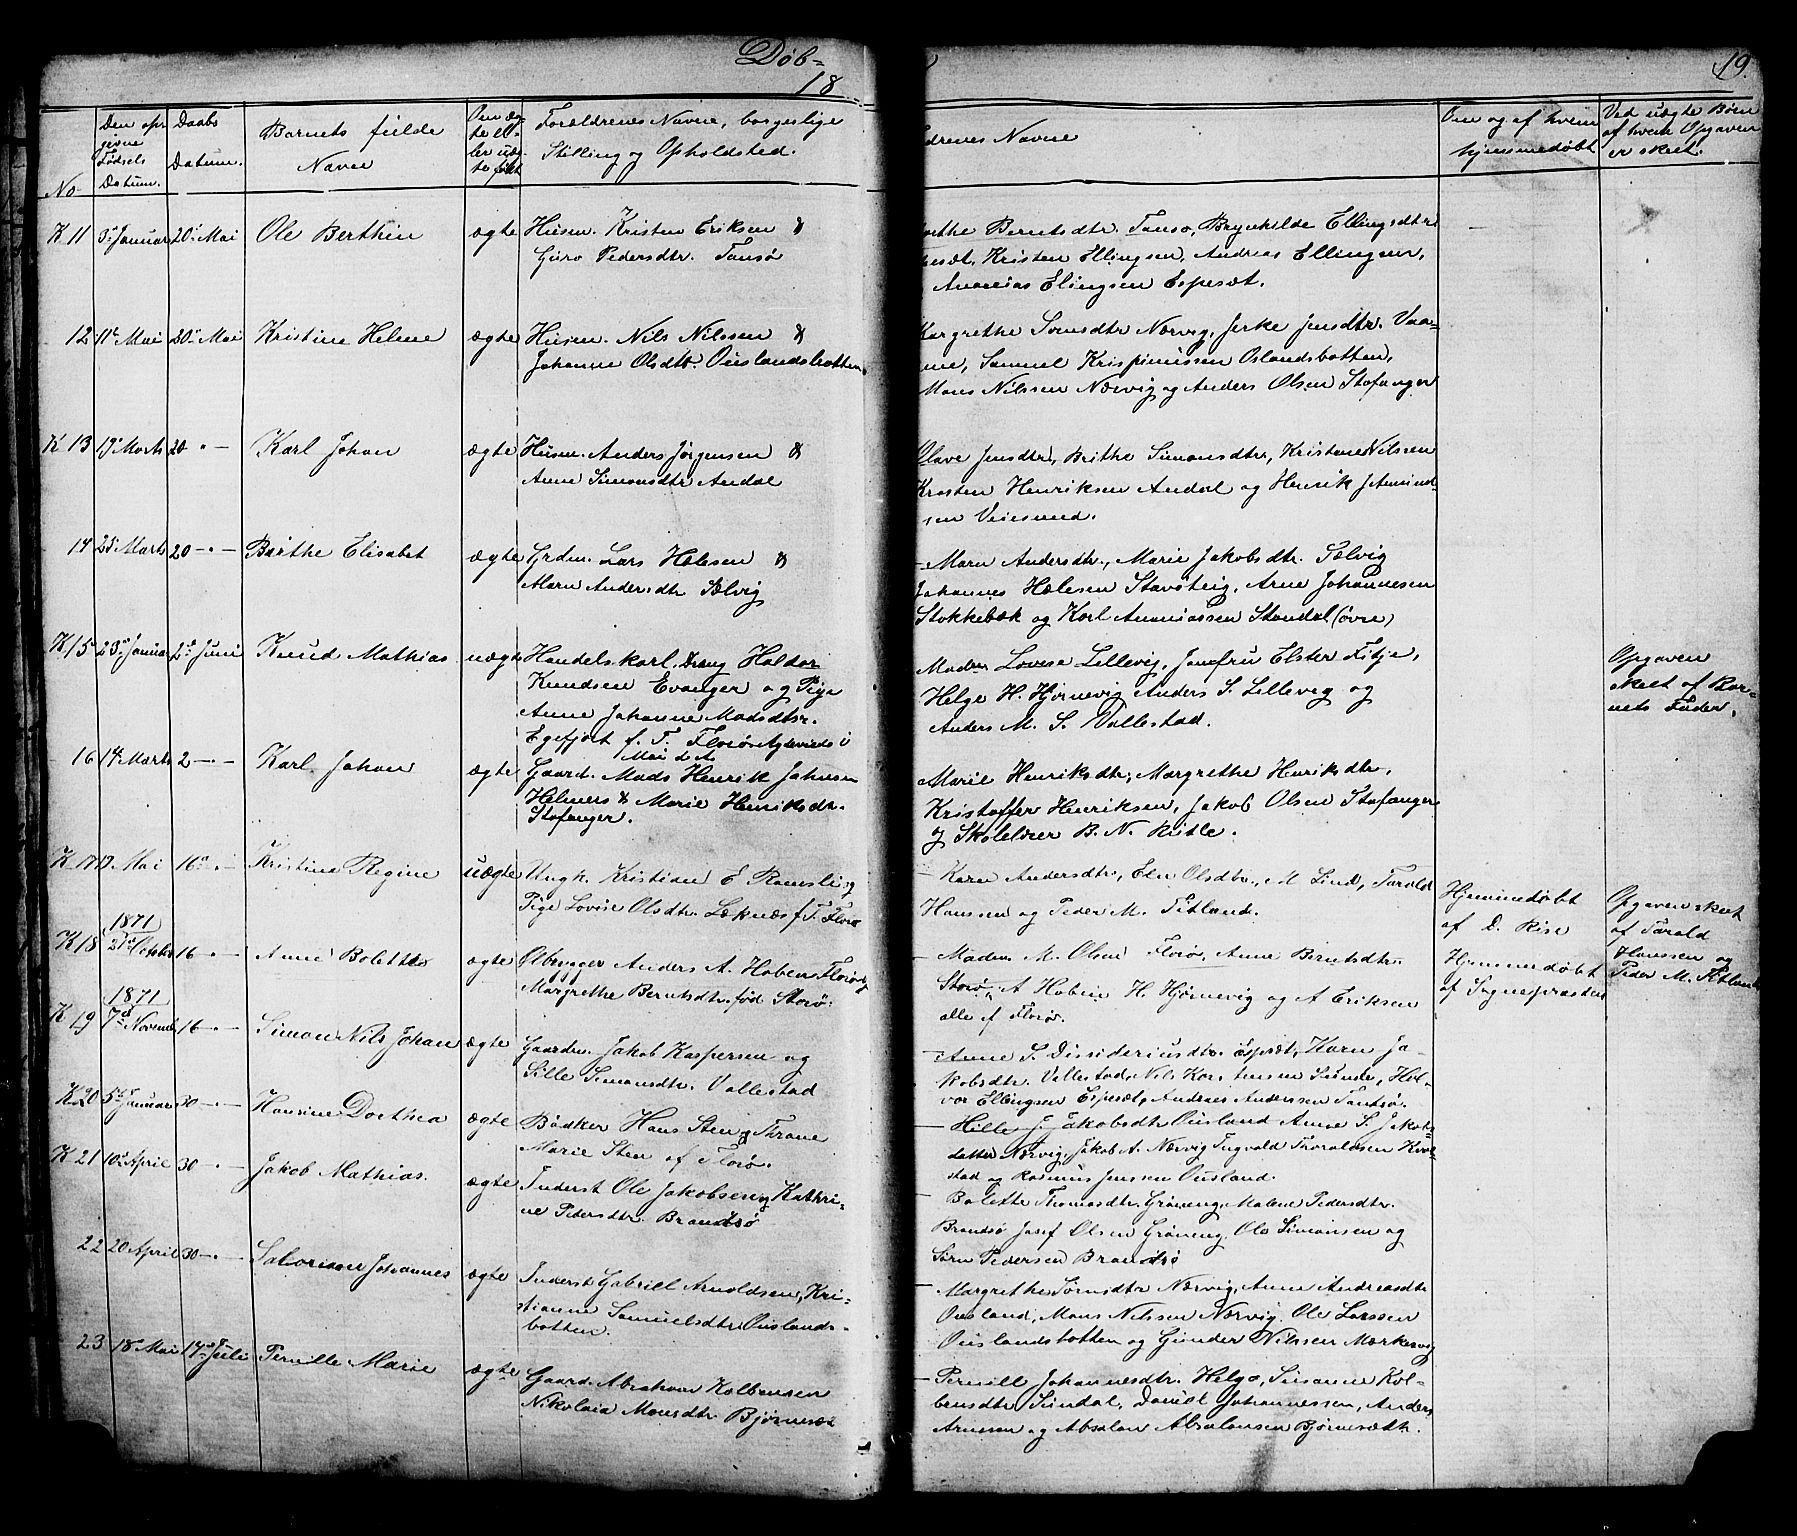 Døb-
18
19.
No
Den op-
givne
Fødsels
Datum.
Daabs
Datum.
Barnets fulde
Navn
Om æg-
te el-
ler uæg-
te født
Forældrenes Navne, borgerlige
Stilling og Opholdsted.
drenes Navne
Om og af hvem
hjemmedøbt
Ved uægte Børn
af hvem Opgaven
er skeet.
K 11 3' Januar 20' Mai Ole Berthin ægte Husm. Kristen Eriksen &
Guro Pedersdtr. Tansø
rthe Berntsdtr. Tansø, Brynhilde Ellingsdtr
esæt, Kristen Ellingsen, Andreas Ellingsen,
Ananias Elingsen Espesæt.
12 11' Mai 20' Mai Kristine Helene ægte Husm. Nils Nilssen &
Johanne Olsdtr. Ouslandsbotten
Margrethe Sørnsdtr Nærvig, Jerke Jensdtr. Vaa-
ne, Samuel Krispinussen Oslandsbotten,
Mons Nilssen Nærvig og Anders Olsen Stafanger
K 13 19' Marts 20 " - Karl Johan ægte Husm. Anders Jørgensen &
Anne Simonsdtr Andal
Olave Jensdtr, Brithe Simonsdtr, Kristen Nilssen
Kristen Henriksen Andal og Henrik J. Amund-
sen Veiesund.
14 25' Marts 20 - " - Birthe Elisabet ægte Grdm. Lars Hælesen &
Marn Andersdtr Sælvig
- Marn Andersdtr., Marie Jakobsdtr. Sælvig
Johannes Hælesen Stavsteig, Arne Johannesen
Stokkebæk og Karl Ananiassen Standal (øvre)
K 15 23' Januar 2d Juni Knud Mathias uægte Handelskarl, Dreng Haldor
Knudsen Evanger og Pige
Anne Johanne Madsdtr.
Egefjort f. T. Florø Agteviede i
Mai d. A.
Madm Lovise Lillevig, Jomfru Elster Fitje,
Helge H. Hjørnevig Anders S. Lillevig og
Anders M. S. Vallestad.
Opgaven
skeet af Bar-
nets Fader.
16 14' Marts 2 - " - Karl Johan ægte Gaard. Mads Henrik Johnsen
Helmers & Marie Henriksdtr.
Stafanger.
Marie Henriksdtr, Margrethe Henriksdtr,
Kristoffer Henriksen, Jakob Olsen Stafanger
og Skolelærer B. N. Kitle.
K 17 12 Mai 16' " - Kristina Regine uægte Ungk. Kristian E Ramsli og
Pige Lovise Olsdtr. Læknæs f. T. Florø
- Karn Andersdtr, Eln Olsdtr., M Lind, Tarald
Hanssen og Peder M. Titland.
Hjemmedøbt
af D. Rise
Opgaven skeet
af Tarald
Hanssen og
Peder M. Titland
1871
K 18 27' October 16 - " - Anne Bolette ægte Ølbrygger Anders A. Haben Florø og
Margrethe Berntsdtr. fød Storø.
- Madm M. Olsen Florø, Anne Berntsdtr.
Storø, A Haben H. Hjørnevig og A Eriksen
alle af Florø.
Hjemmedøbt
af Sognepræsten
1871
K 19 7d November 16 - " - Simon Nils Johan ægte Gaardm. Jakob Kaspersen og
Sille Simonsdtr. Vallestad
- Anne S. Dissideriusdtr. Espesæt, Karn Ja-
kobsdtr. Vallestad, Nils Karstensen Sunde, Hal-
vor Ellingsen Espesæt, Andreas Anderssen Tansø.
K 20 5d Januar 30 - " - Hansine Dorthea ægte Bødker Hans Sten og Thrane
Marie Sten af Florø.
- Hille J. Jakobsdtr Ousland Anne S. Jakobs-
datter Nærvig, Jakob A. Nærvig Ingvald Tharaldssen Kval-
stad og Rasmus Jensen Ousland.
K 21 10' April 30 - " - Jakob Mathias. ægte Inderst Ole Jakobsen og Kathri-
ne Pedersdtr. Brandsø
- Bolette Thomasdtr. Grøneng, Malene Pedersdtr.
Brandsø Josef Olsen Grøneng, Ole Simonsen og
Sørn Pedersen Brandsø
22 20 April 30 - " - Johannes ægte Inderst Gabriell Arnoldsen, Kri-
stianne Samuelsdtr Ouslands-
botten.
- Margrethe Sørnsdtr Nærvig, Anne Andreasdtr
Ousland, Mons Nilssen Nærvig, Ole Larssen
Ouslandsbotten og Gunder Nilssen Markevig
23 18' Mai 14d Juli Pernille Marie ægte Gaard. Abraham Kolbensen
Nikolaia Monsdtr Bjørnesæt
- Pernill Johannesdtr. Helgø, Susanne Kol-
bensdtr Sundal, Daniel Johannessen, Anders
Arnesen og Absalon Absalonsen Bjørnesæth.